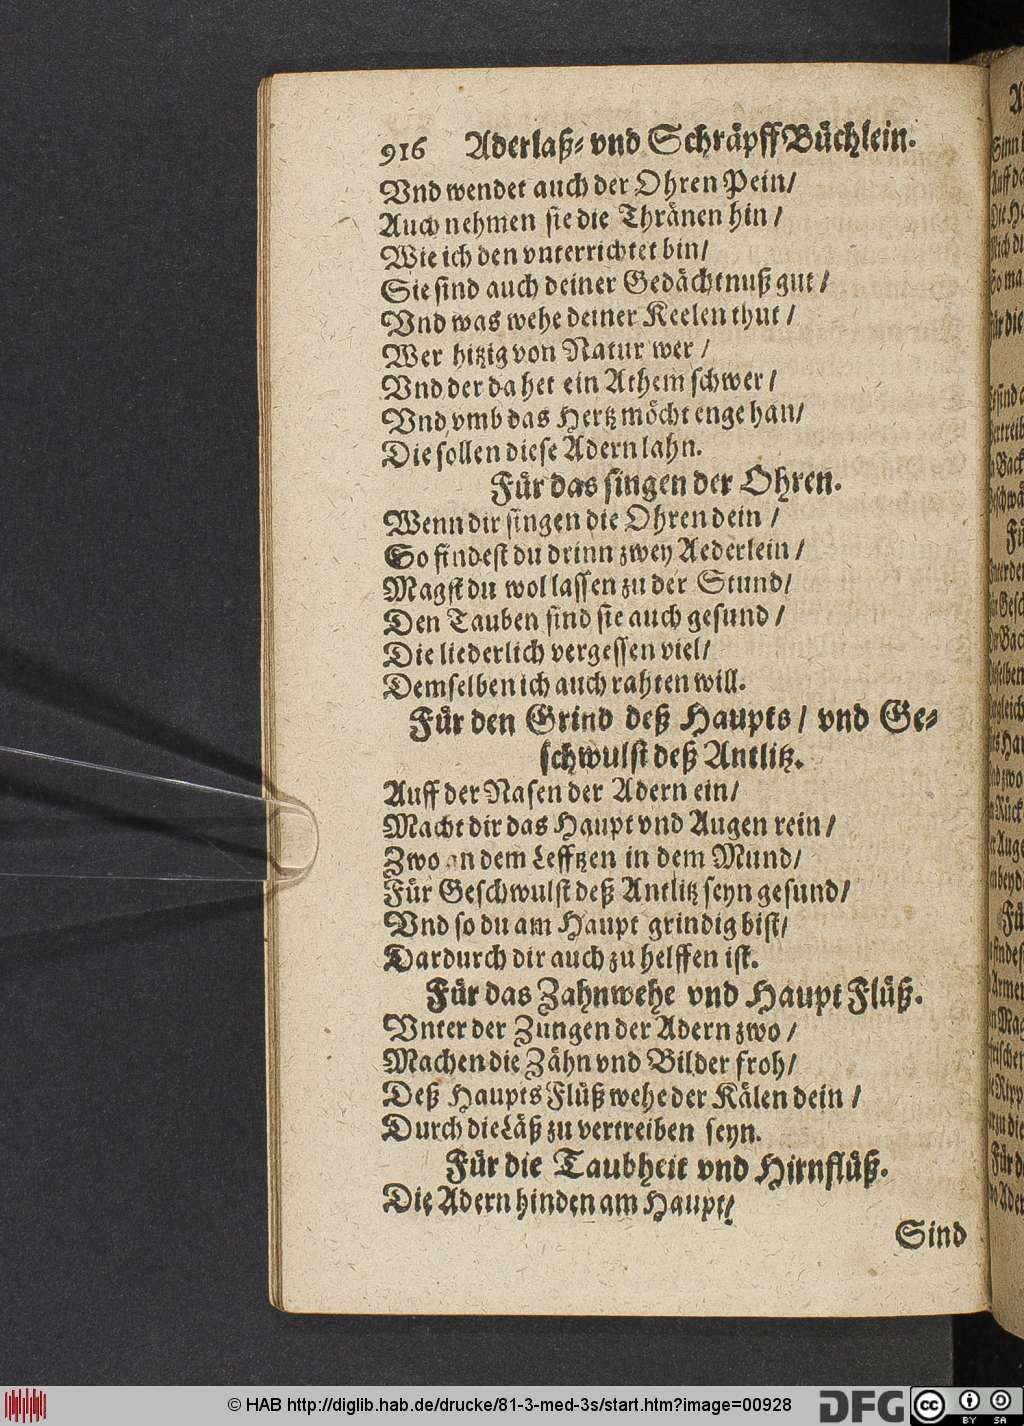 916 Aderlaß- vnd Schräpff Büchlein.
Vnd wendet auch der Ohren Pein/
Auch nehmen sie die Thränen hin /
Wie ich den vnterrichtet bin/
Sie sind auch deiner Gedächtnuß gut /
Vnd was wehe deiner Keelen thut /
Wer hitzig von Natur wer /
Vnd der da het ein Athem schwer /
Vnd vmb das Hertz möcht enge han/
Die sollen diese Adern lahn.
Für das singen der Ohren.
Wenn dir singen die Ohren dein /
So findest du drinn zwey Aederlein /
Magst du wol lassen zu der Stund/
Den Tauben sind sie auch gesund /
Die liederlich vergessen viel/
Demselben ich auch rahten will.
Für den Grind deß Haupts / vnd Ge-
schwulst deß Antlitz.
Auff der Nasen der Adern ein/
Macht dir das Haupt vnd Augen rein /
Zwo an dem Lefftzen in dem Mund/
Für Geschwulst deß Antlitz seyn gesund/
Vnd so du am Haupt grindig bist/
Dardurch dir auch zu helffen ist.
Für das Zahnwehe vnd Haupt Flüß.
Vnter der Zungen der Adern zwo /
Machen die Zähn vnd Bilder froh/
Deß Haupts Flüß wehe der Kälen dein /
Durch die Läß zu vertreiben seyn.
Für die Taubheit vnd Hirnflüß.
Die Adern hinden am Haupt/
Sind
© HAB http://diglib.hab.de/drucke/81-3-med-3s/start.htm?image=00928
DFG
cc
BY SA